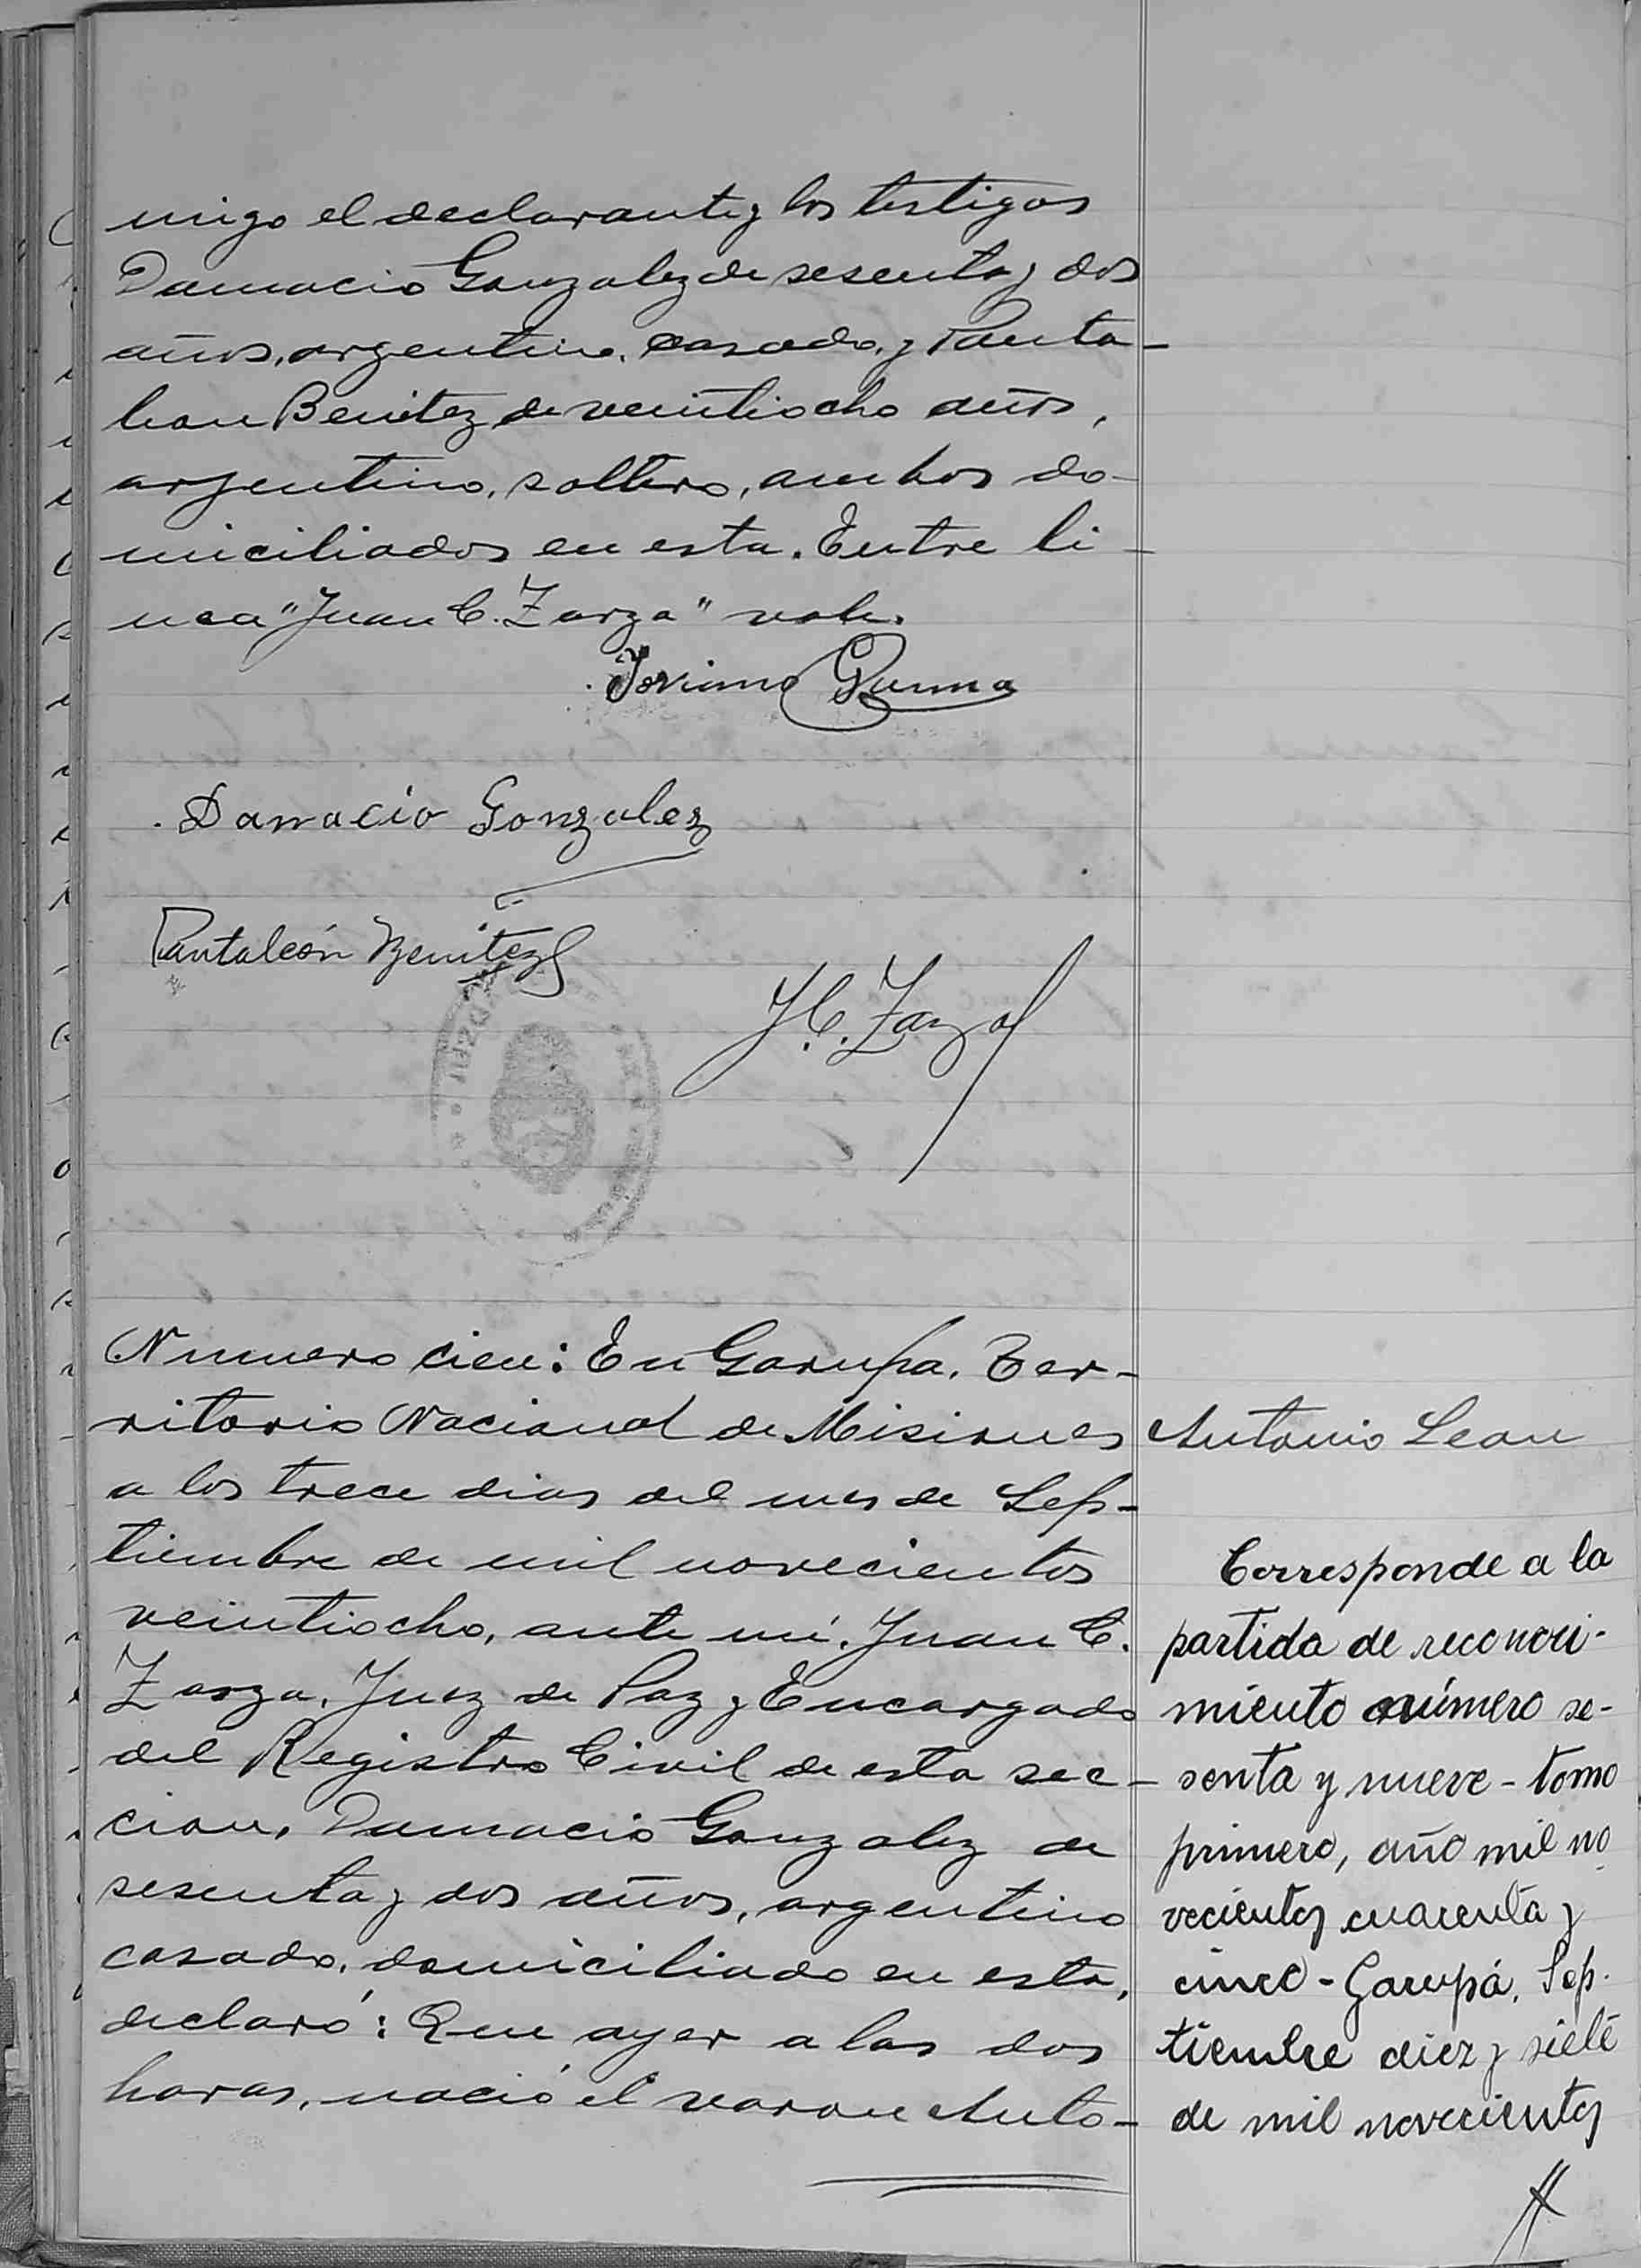 migo el declarante y los testigos
Damacio Gonzalez de sesenta y dos
años, argentino, casado, y Panta-
leon Benitez de veintiocho años,
argentino, soltero, ambos do-
miciliados en esta. Entre li-
nea "Juan C. Zarza" vale.
Damacio Gonzalez
Pantaleón Benitez
J. C. Zarza
Numero cien: En Garupa, Ter-
ritorio Nacional de Misiones
a los trece dias del mes de Sep-
tiembre de mil novecientos
veintiocho, ante mí, Juan C.
Zarza, Juez de Paz y Encargado
del Registro Civil de esta sec-
cion, Damacio Gonzalez de
sesenta y dos años, argentino
casado, domiciliado en esta,
declaró: Que ayer a las dos
horas, nació el varon Anto-
Antonio Leon
Corresponde a la
partida de reconoci-
miento número se-
senta y nueve - tomo
primero, año mil no
vecientos cuarenta y
cinco - Garupá, Sep-
tiembre diez y siete
de mil novecientos